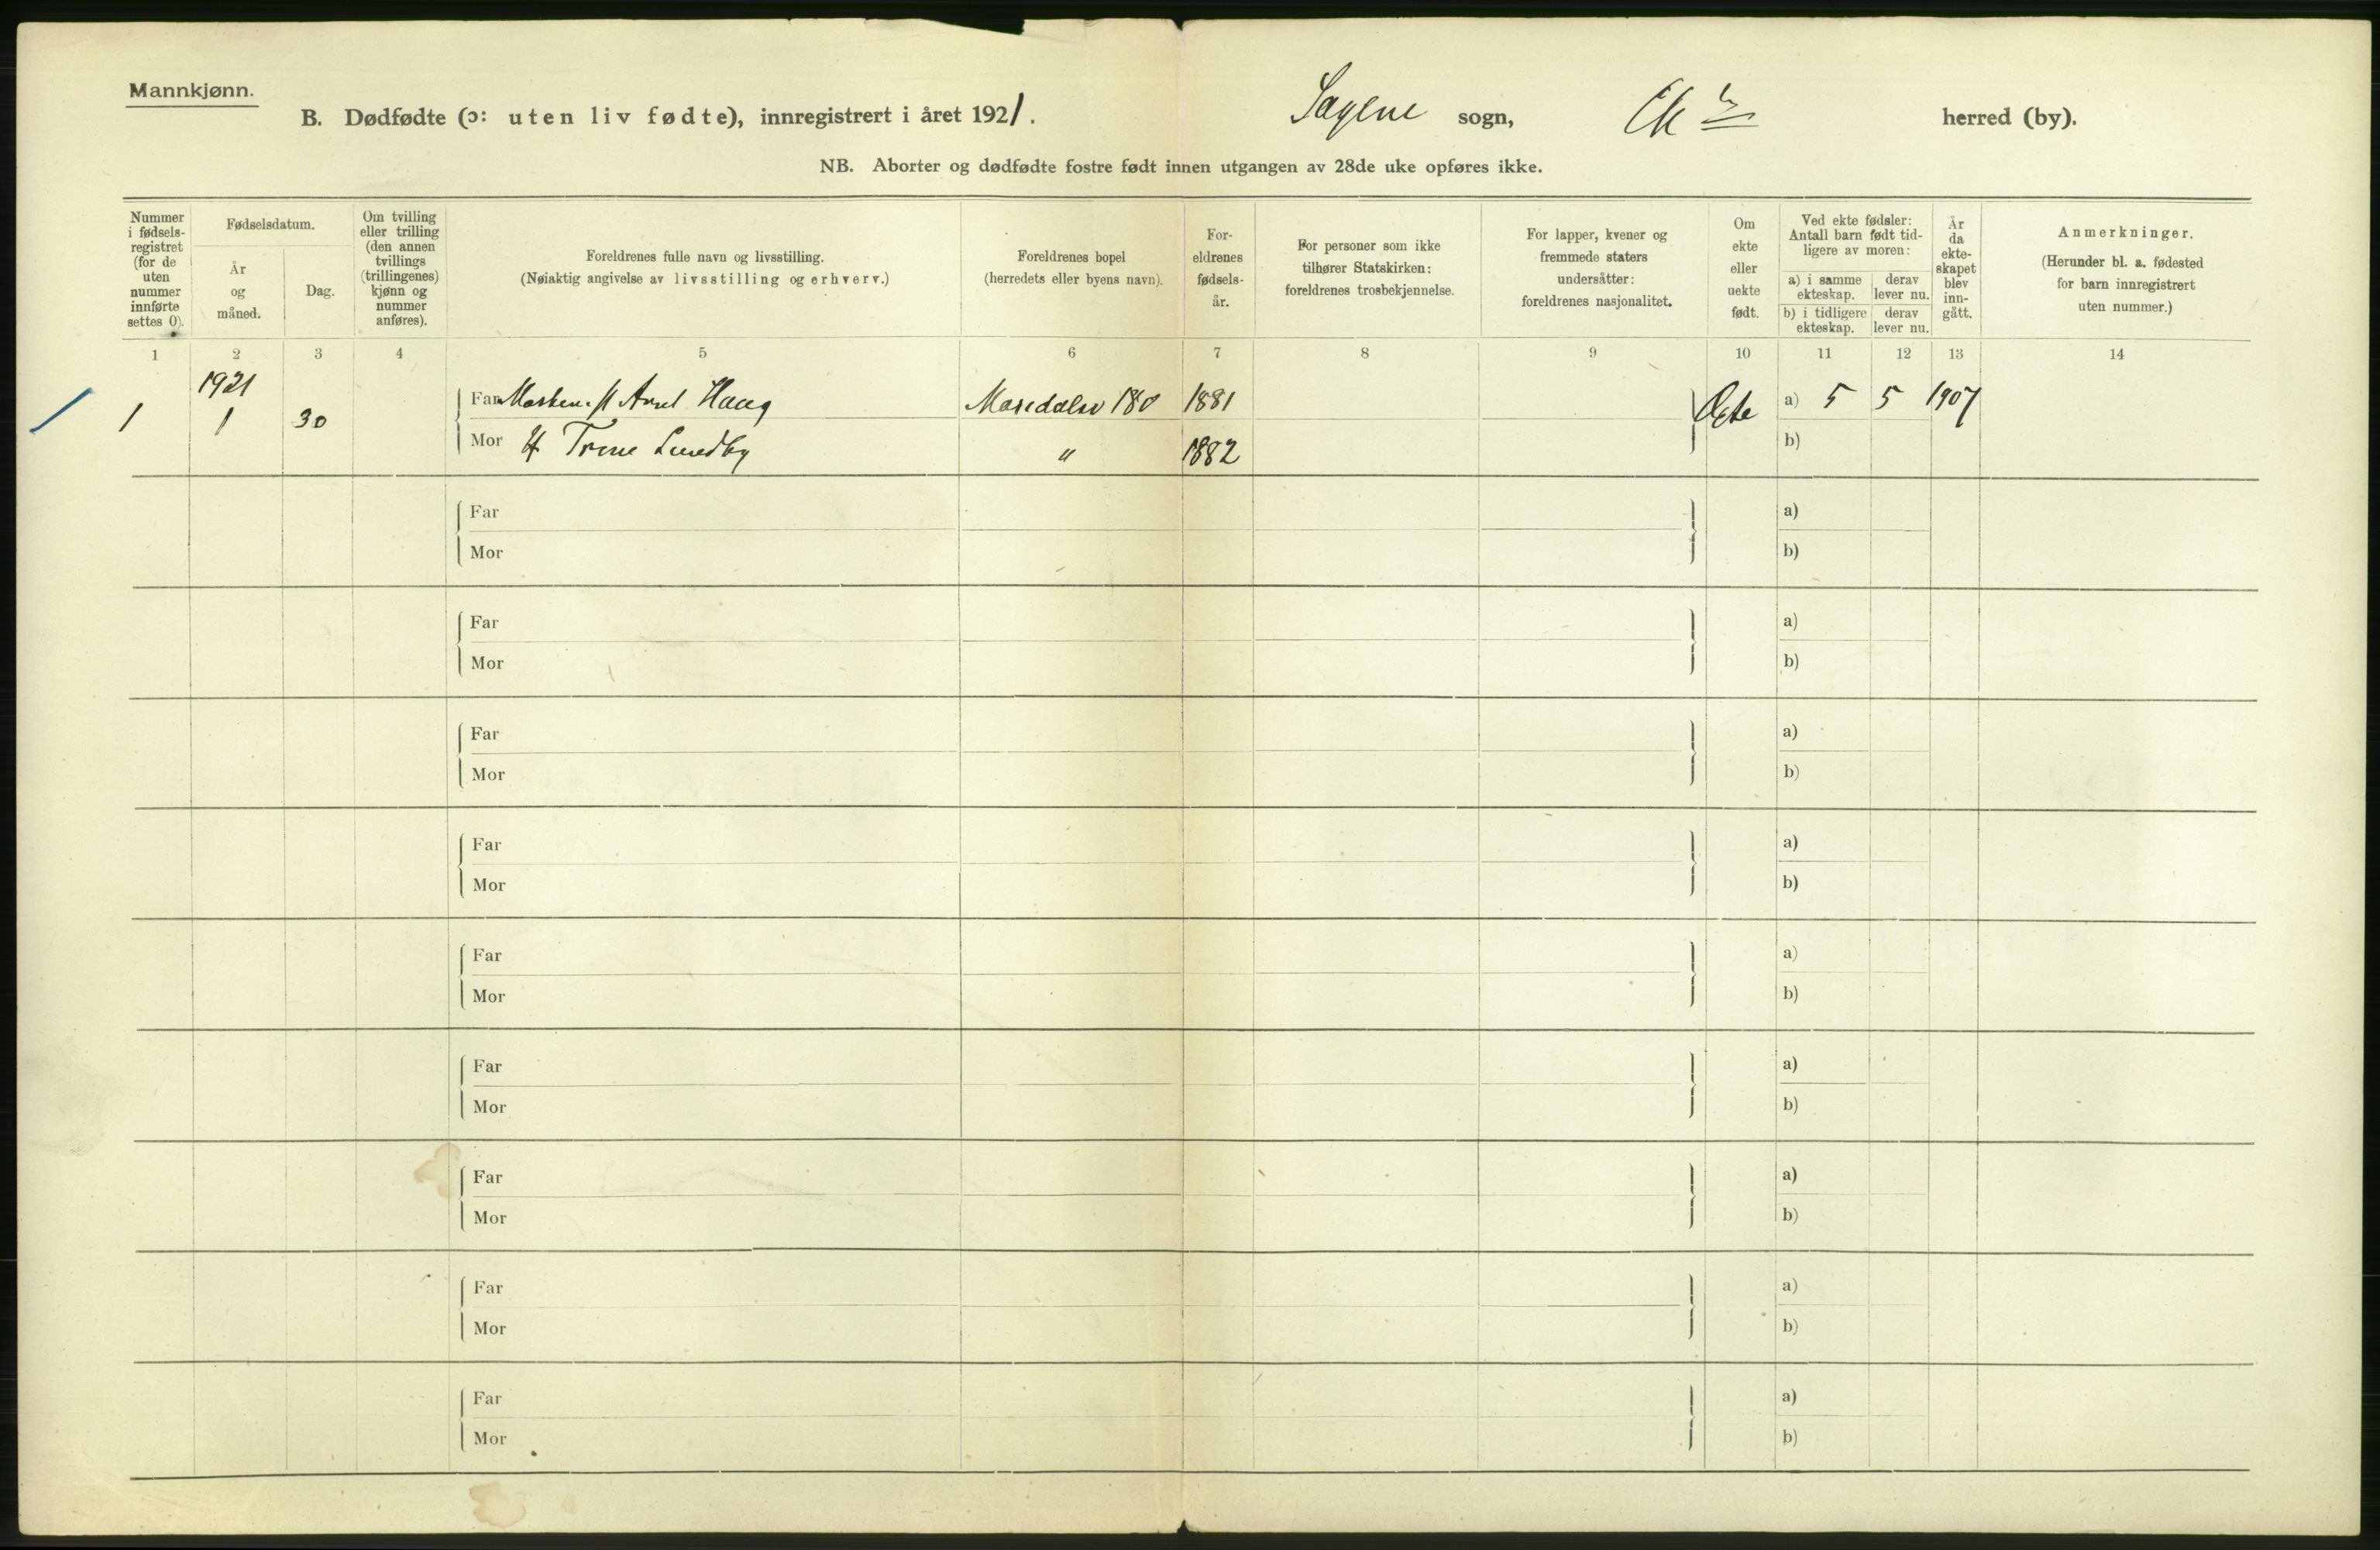 Mannkjønn.
B. Dødfødte (ɔ: uten liv fødte), innregistrert i året 1921.
Sagene sogn, herred (by).
NB. Aborter og dødfødte fostre født innen utgangen av 28de uke opføres ikke.
Nummer i fødsels-registret (for de uten nummer innførte settes 0).
Fødselsdatum.
År og måned.
Dag.
Om tvilling eller trilling (den annen tvillings (trillingenes) kjønn og nummer anføres).
Foreldrenes fulle navn og livsstilling.
(Nøiaktig angivelse av livsstilling og erhverv.)
Foreldrenes bopel
(herredets eller byens navn).
For-eldrenes fødsels-år.
For personer som ikke tilhører Statskirken: foreldrenes trosbekjennelse.
For lapper, kvener og fremmede staters undersåtter: foreldrenes nasjonalitet.
Om ekte eller uekte født.
Ved ekte fødsler: Antall barn født tid-ligere av moren:
a) i samme ekteskap.
derav lever nu.
b) i tidligere ekteskap.
derav lever nu.
År da ekte-skapet blev inn-gått.
Anmerkninger.
(Herunder bl. a. fødested for barn innregistrert uten nummer.)
1 2 3 4 5 6 7 8 9 10 11 12 13 14
1921
1 1 30 Far Axel Haug Maridalsv 180 1881 Ægte a) 5 5 1907
Mor Trine Lundby " 1882 b)
Far a)
Mor b)
Far a)
Mor b)
Far a)
Mor b)
Far a)
Mor b)
Far a)
Mor b)
Far a)
Mor b)
Far a)
Mor b)
Far a)
Mor b)
Far a)
Mor b)